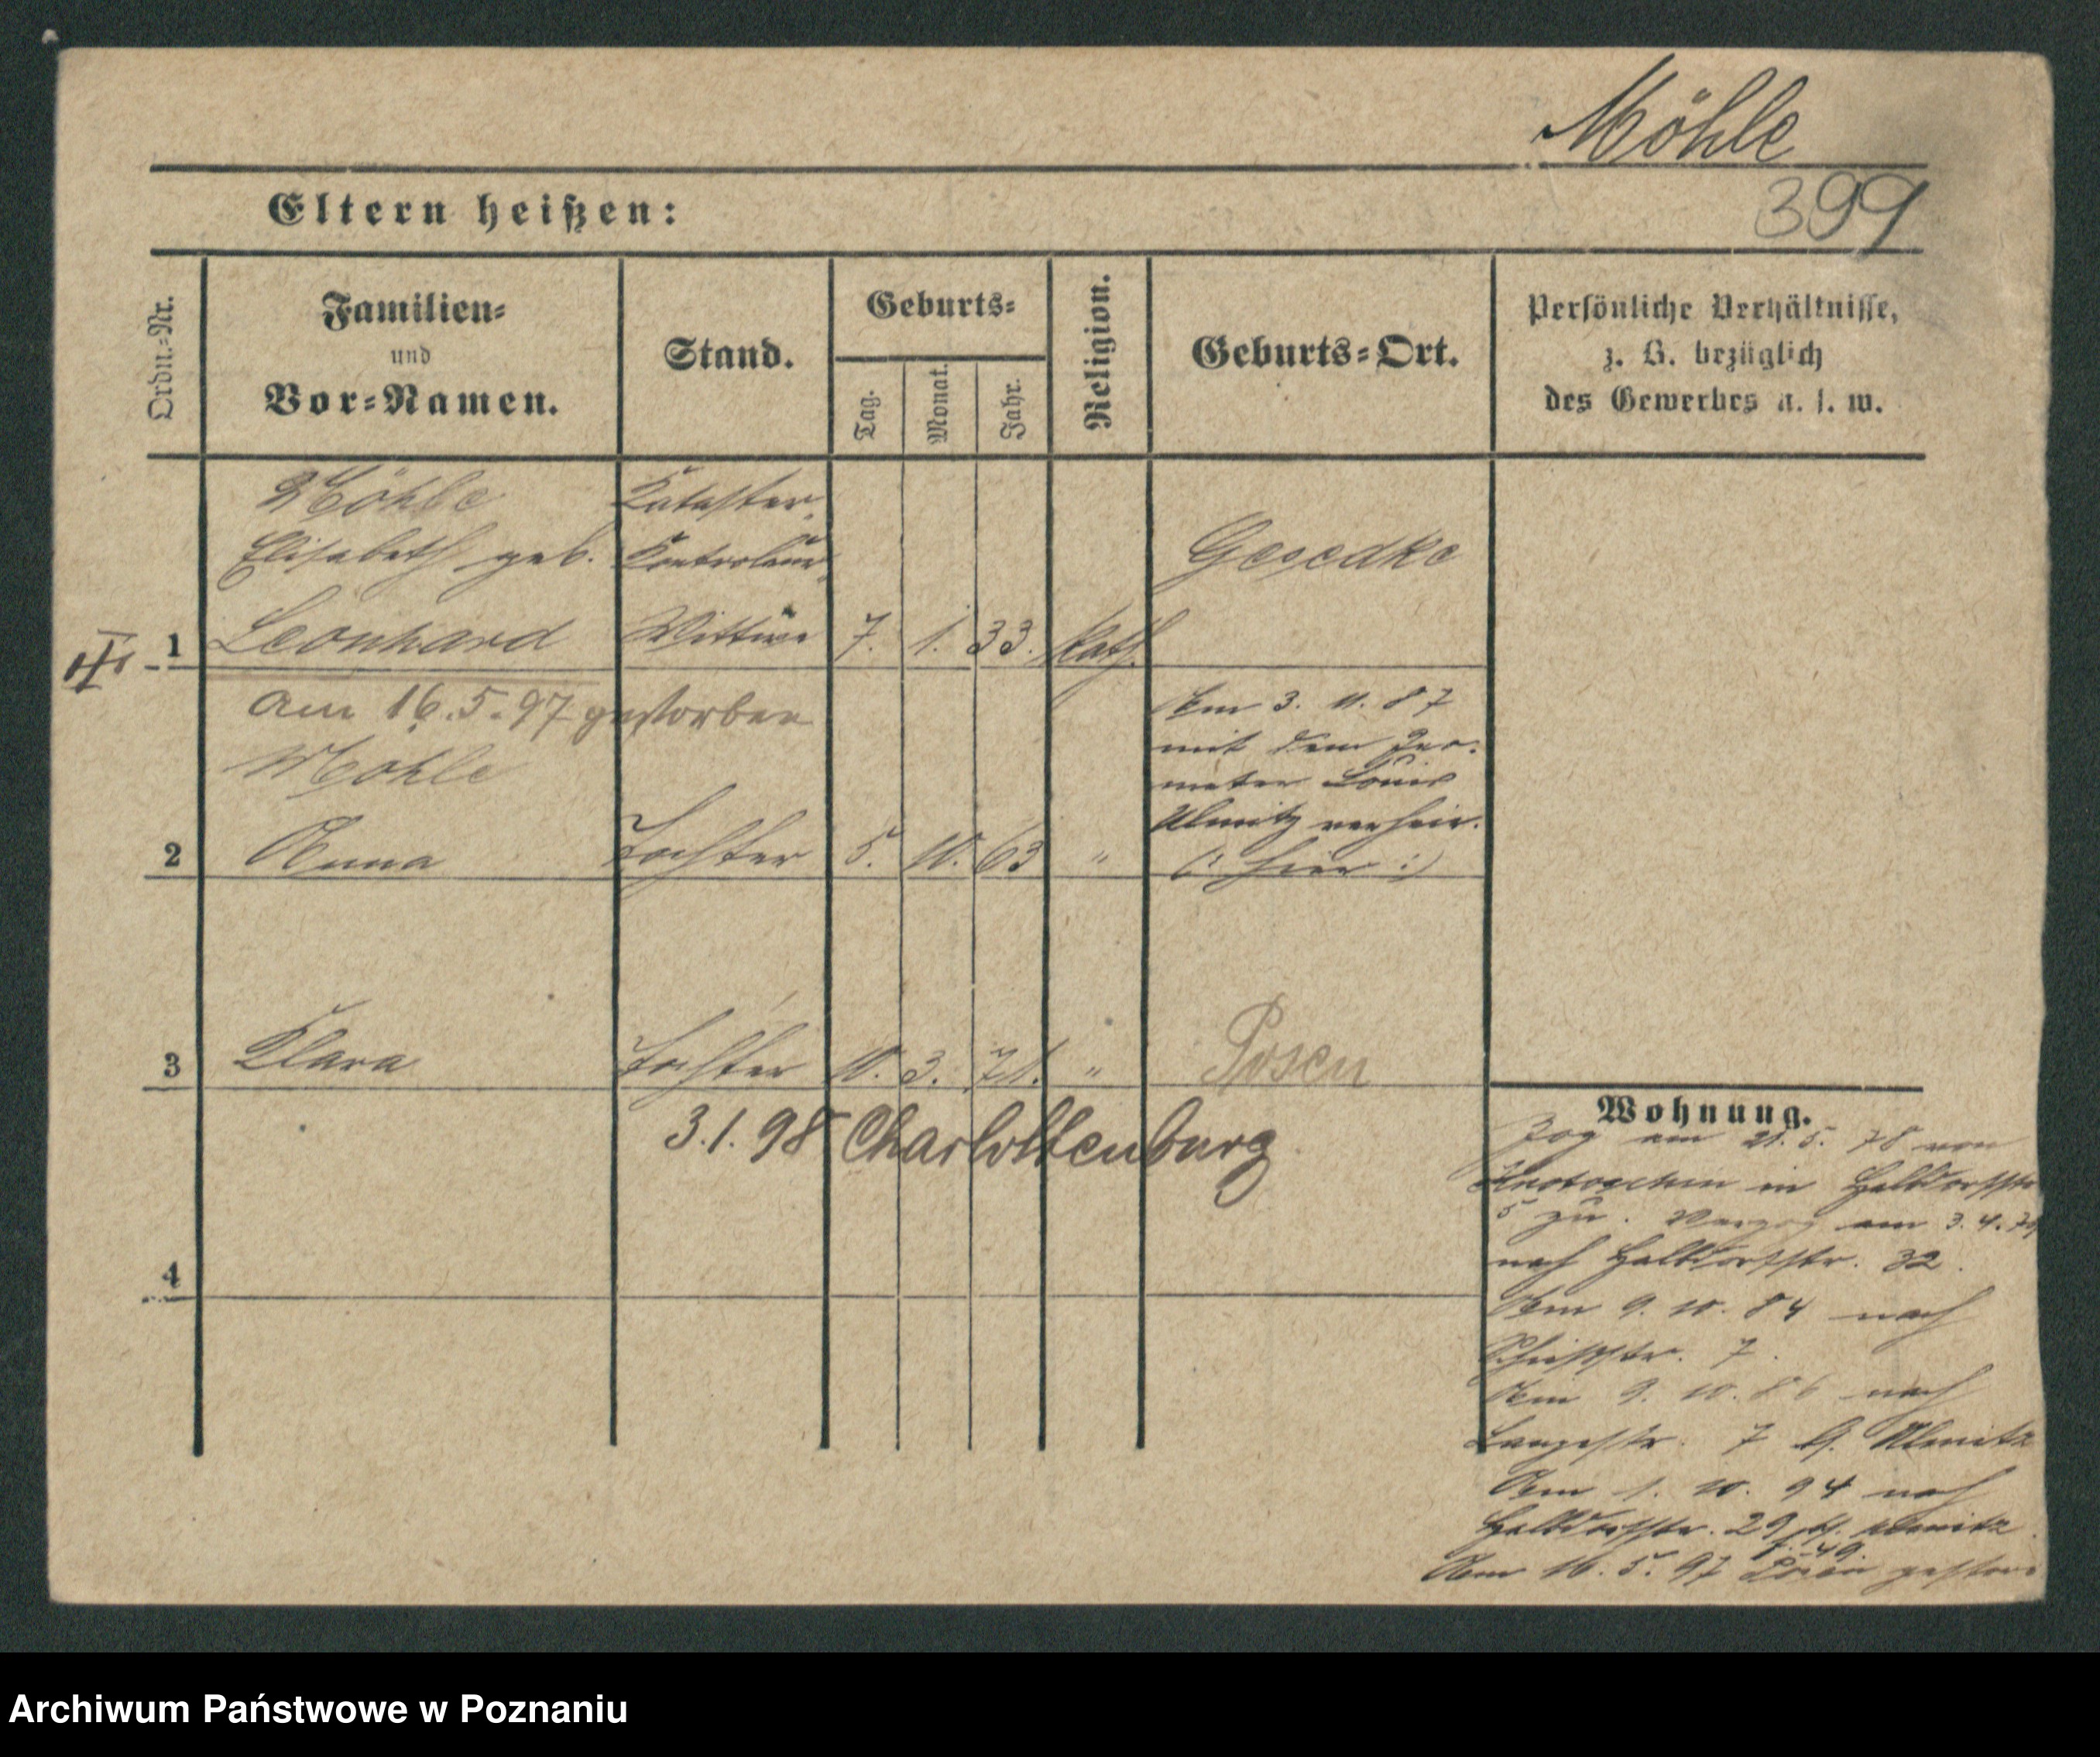 Möhle
399
Eltern heißen:
Ordn.-Nr.
Familien-
und
Vor-Namen.
Stand.
Geburts-
Tag.
Monat.
Jahr.
Religion.
Geburts-Ort.
Persönliche Verhältnisse,
z. B. bezüglich
des Gewerbes u. s. w.
Möhle Kataster-
Elisabeth geb. Kontroleur
Gesedke
1 Leonhard Wittwe 7. 1. 33. kath.
am 16.5.97 gestorben
Möhle
Am 3. 11. 87
mit dem Geo-
meter Louis
Ulmitz verheir.
2 Anna Tochter 5. 10. 63 "
(: hier :)
3 Klara Tochter 10. 3. 71. " Posen
3.1.98 Charlottenburg
4
Wohnung.
Zog am 21. 5. 78 von
Krotoschin in Halbdorfstr
5 zu. Verzog am 3. 4. 79
nach Halbdorfstr. 32.
Am 9. 10. 84 nach
Schießstr. 7.
Am 9. 10. 86 nach
Langestr. 7 b. Ulmitz
Am 1. 10. 94 nach
Halbdorfstr. 29 b. Ulmitz.
Am 16. 5. 97 gestor
Archiwum Państwowe w Poznaniu